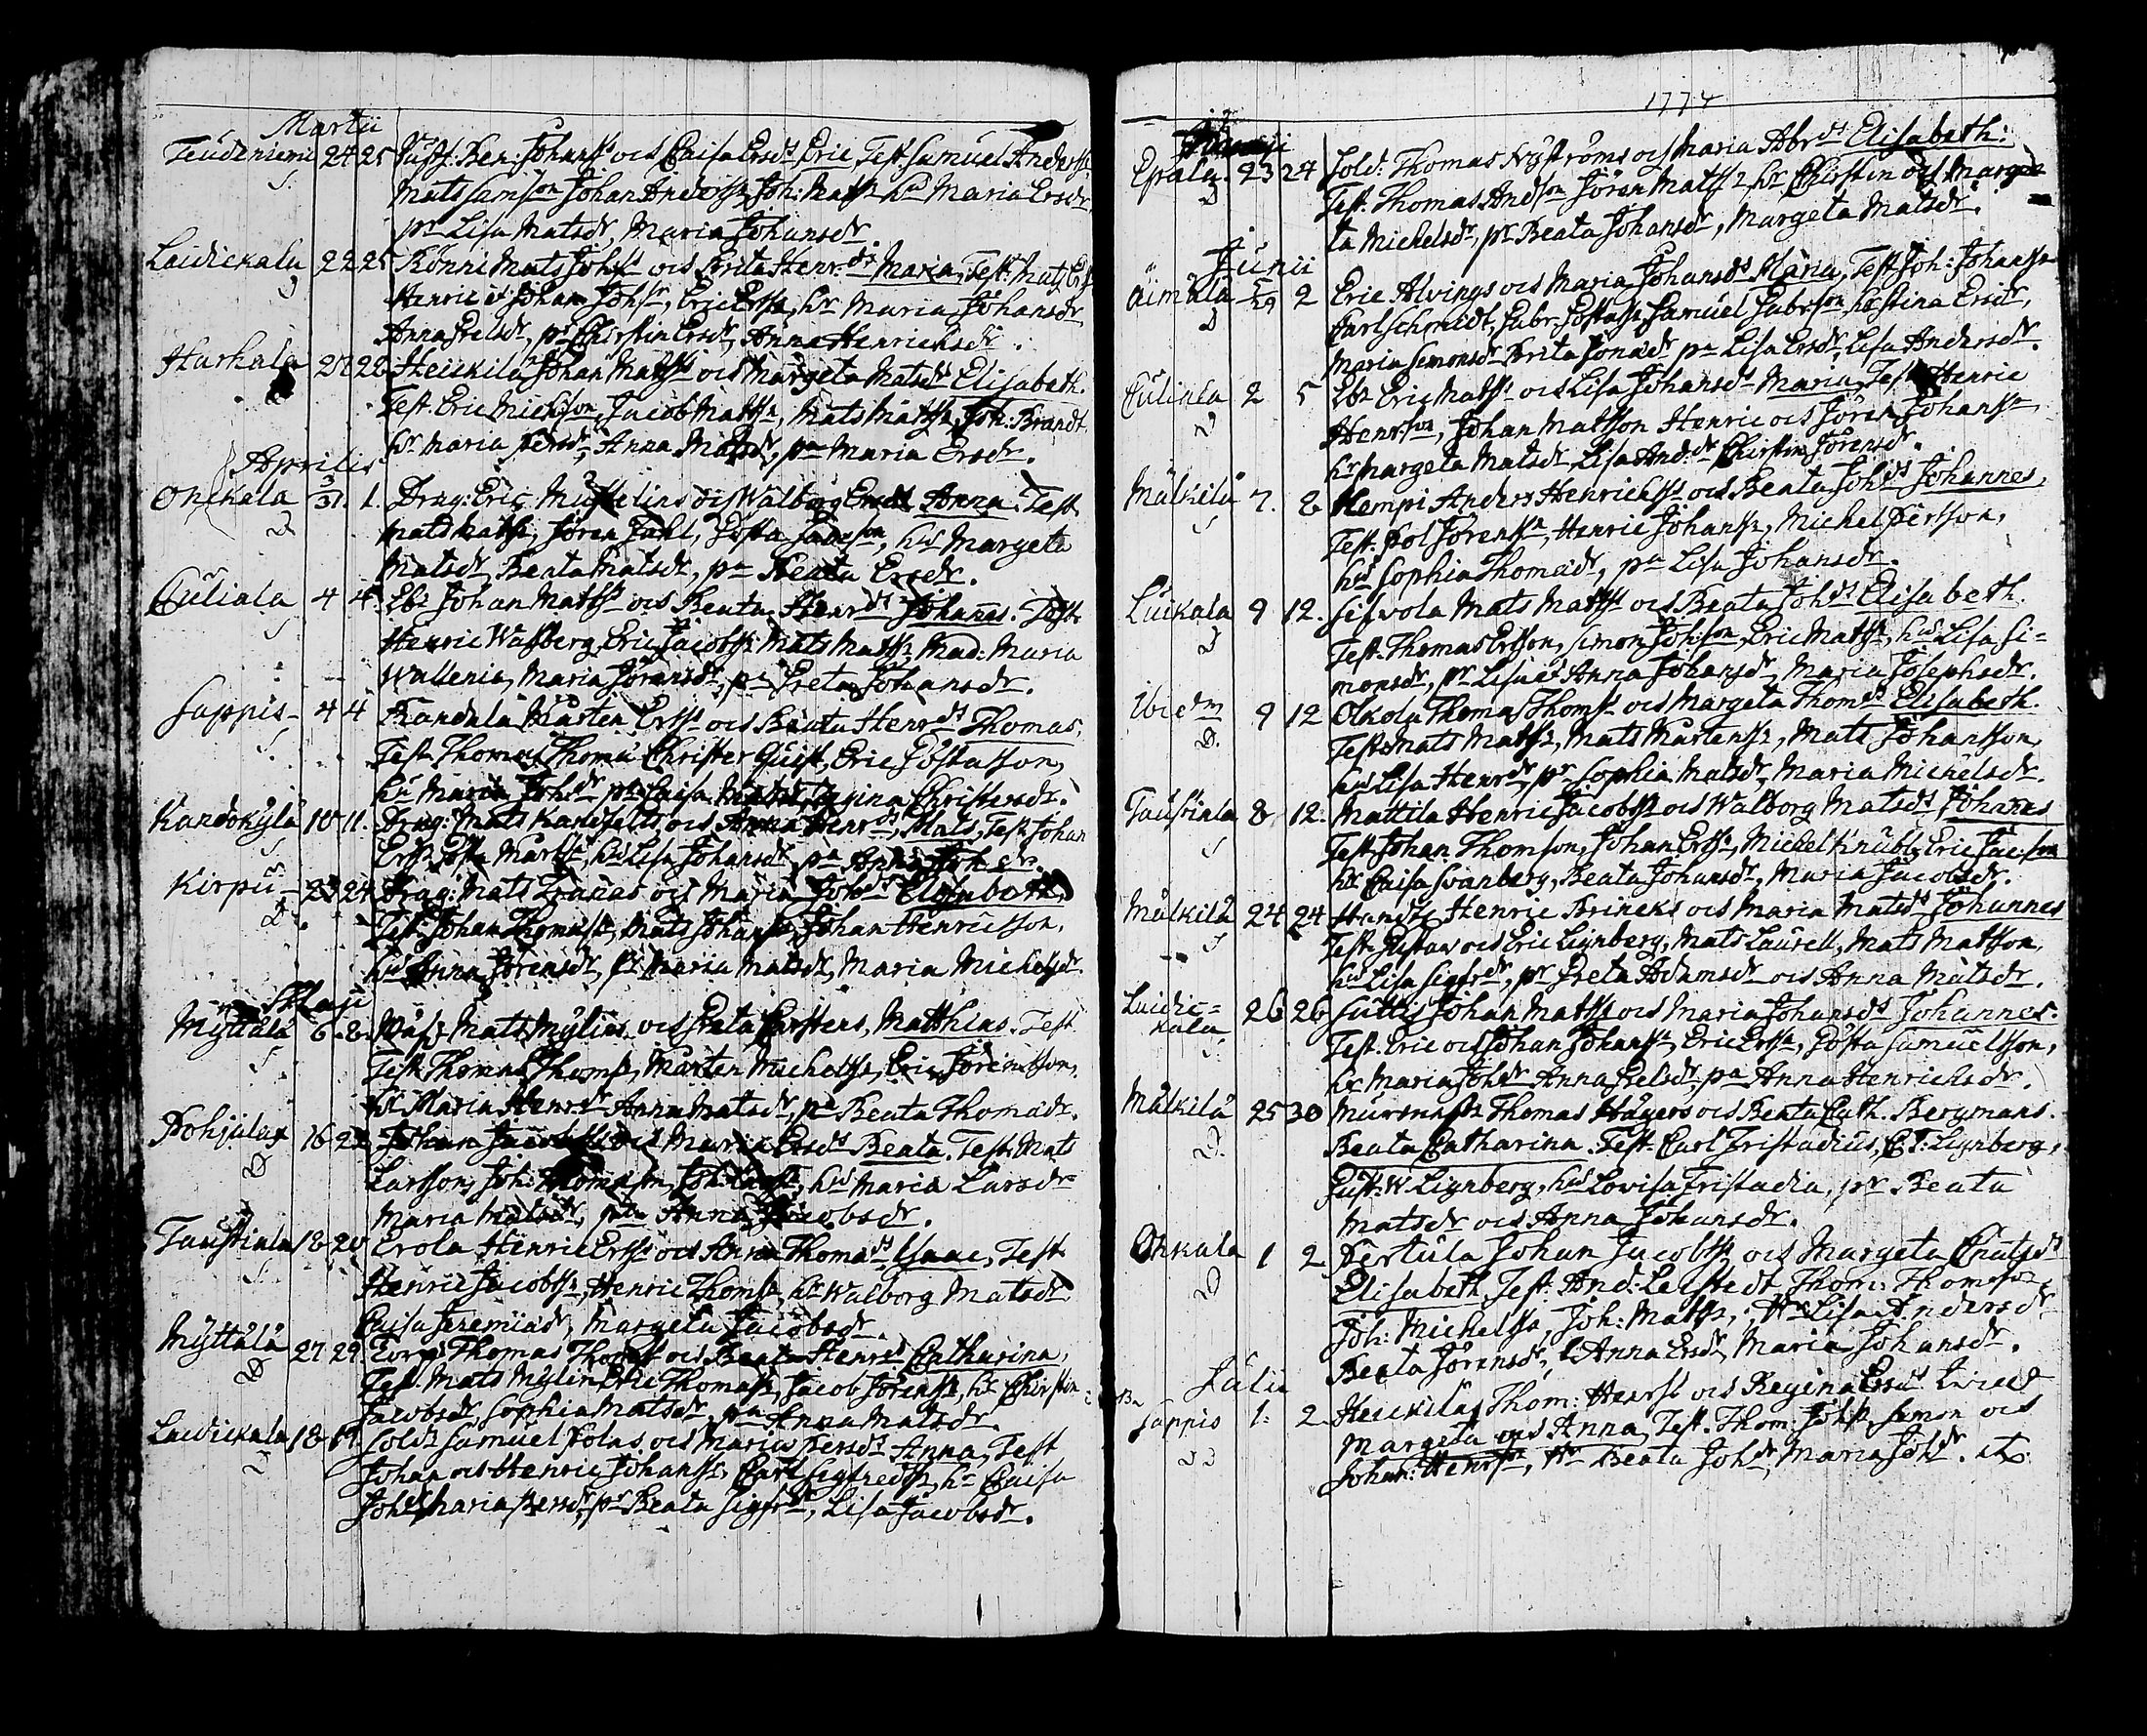 Martii
Teudzniemi 24 25 Ben: Johanss ock Caisa Ersds Eric, Test. Samuel Anderss,
Mats Samson Johan Anderss, Joh: Matss hu Maria Ersdr,
pr Lisa Matsdr, Maria Johansdr
Laidickala 22 25 Könni Mats Johss ock Brita Henrds Maria, Test: Mats
Henric et Johan Johss, Eric Erss, hr Maria Johansdr
Anna Erelsdr, pr Christin Ersdr, Anna Henrichsdr.
Harhala 27 28 Heickilä Johan Matss ock Margeta Matsds Elisabeth.
Test. Eric Michson, Jacob Matss, Mats Matss, Joh: Brandt
hr Maria Persdr, Anna Matsdr, pa Maria Ersdr.
Aprilis
Onckala 3/31 1. Drag: Eric ock Walborg Ersds Anna. Test.
Mats Matss, Jören Pahl, Gösta, hu Margeta
Matsdr, Beata Matsdr, pa Beata Ersdr.
Culiala 4 4 Ebs Johan Matss ock Beata Henrds Johanes. Test.
Henric Walberg, Eric Jacobss, Mats Matss, Mad: Maria
Wallenia, Maria Jörensdr, pa Greta Johansdr.
Sappis 4 4 Kandala Mårten Erss ock Beata Henrds Thomas,
Test. Thomas Christer Quist, Eric Göstasson,
hu Maria Johsdr pa Caisa Regina Christersdr.
Kandokylä 10 11. Drag: Mats ock Anna Henrds, Mats, Test. Johan
Erss Gösta Martss, hu Lisa Johansdr pa Anna Johsdr.
Kirpu 23 24 Drag: Mats Granas ock Maria Johds Elisabeth
Test. Johan Thomass, Mats Johanss, Johan Henricsson,
hu Anna Jörensdr, pr Maria Matsdr, Maria Michelsdr.
Maji
Myttälä 6 8. Mats Mylius ock Greta Carstens, Matthias. Test.
Test. Thomas Thoms, Mårten Michelss, Eric
hr Maria Henrdr Anna Matsdr, pa Beata Thomædr.
Pohjala 16 22 Johan Jacobss ock Maria Ersds Beata. Test. Mats
Larsson, Joh: Thomass, hu Maria Larsdr
Maria Matsdr, pa Anna Jacobsdr.
Taustiala 18 20 Erola Henric Erss ock Anna Thomæds Isaac, Test.
Henric Jacobss, Henric Thomss, hr Walborg Matsdr
Caisa Jeremiædr, Margeta Jacobsdr.
Myttälä 27 29. Torp: Thomas Thomss ock Beata Henrds Catharina,
Test. Mats Mylin Eric Thomass, Jacob Jörenss, hr Christin
Jacobsdr Sophia Matsdr, pa Anna Matsdr.
Laidickala 18 19. Solds Samuel Polas ock Maria Persds Anna, Test
Johan ock Henric Johanss, Carl Sigfredss, hr Caisa
Johds Maria Persdr, pr Beata Sigfrdr, Lisa Jacobsdr.
1774
Epala 23 24 Sold: Thomas Nyströms ock Maria Abrds Elisabeth:
Test. Thomas Andson Jören Matss hr Christin ock Marge
ta Michelsdr, pr Beata Johansdr, Margeta Matsdr.
Junii
Äimälä 2 Eric Alvings ock Maria Johansds Maria, Test. Joh: Johanss
Carl Schmidt, Gabr: Göstass, Samuel Gabrson, hr Stina Ersdr,
Maria Simonsdr Brita Jonædr pa Lisa Ersdr, Lisa Andersdr.
Culiala 2 5 Ebs Eric Matss ock Lisa Johansds Maria, Test. Henric
Henrson, Johan Matsson Henric ock Jören Johanss,
hr Margeta Matsdr Lisa Anddr Christin Jörensdr.
Mälkilä 7. 8 Hempi Anders Henrichss ock Beata Johds Johannes,
Test. Pol Jörenss, Henric Johanss, Michel Persson,
hu Sophia Thomædr, pa Lisa Johansdr.
Luikala 9 12. Silvola Mats Matss ock Beata Johds Elisabeth.
Test. Thomas Ersson, Simon Johson, Eric Matss, hu Lisa Si=
monsdr, pr Lisa ock Anna Johansdr, Maria Josephsdr.
Ibidm 9 12 Olkola Thomas Thomss ock Margeta Thomds Elisabeth.
Test. Mats Matss, Mats Martenss, Mats Johansson,
hu Lisa Henrdr, pr Sophia Matsdr, Maria Michelsdr.
Taustiala 8 12. Mattila Henric Jacobss ock Walborg Matsds Johanes
Test. Johan Thomson, Johan Erss, Michel Knubb, Eric Jacson
hr Caisa Svanberg, Beata Johansdr, Maria Jacobsdr.
Mälkilä 24 24 Henric Brincks ock Maria Matsds Johannes
Test. Gustav ock Eric Lignberg, Mats Laurell, Mats Matsson,
hu Lisa Sigfrdr, pr Greta Adamsdr ock Anna Matsdr.
Laidic=
kala 26 26 Suttis Johan Matss ock Maria Johansds Johannes.
Test. Eric ock Johan Johanss, Eric Erss, Gösta Samuelsson,
hr Maria Johdr Anna Erelsdr, pa Anna Henrichsdr.
Mälkilä 25 30 Murmäst Thomas Hägers ock Beata Cath. Bergmans.
Beata Catharina. Test. Carl Fristadius, C: J: Lignberg,
Gust: W Lignberg, hu Lovisa Fristadia, pr Beata
Matsdr ock Anna Johansdr.
Onkala 1 2 Pertula Johan Jacobss ock Margeta Cnutsds
Elisabeth. Test. And: Lelstedt Thom: Thomson,
Joh: Michelss, Joh: Matss, Hr Lisa Andersdr
Beata Jörensdr, Anna Ersdr, Maria Johansdr.
Julii
Sappis 1. 2. Heickilä Thom: Henrss ock Regina Ersds
Margeta ock Anna, Test. Thom: Johss, Simon ock
Johan: Henrss, Hr Beata Johdr, Maria Johdr.